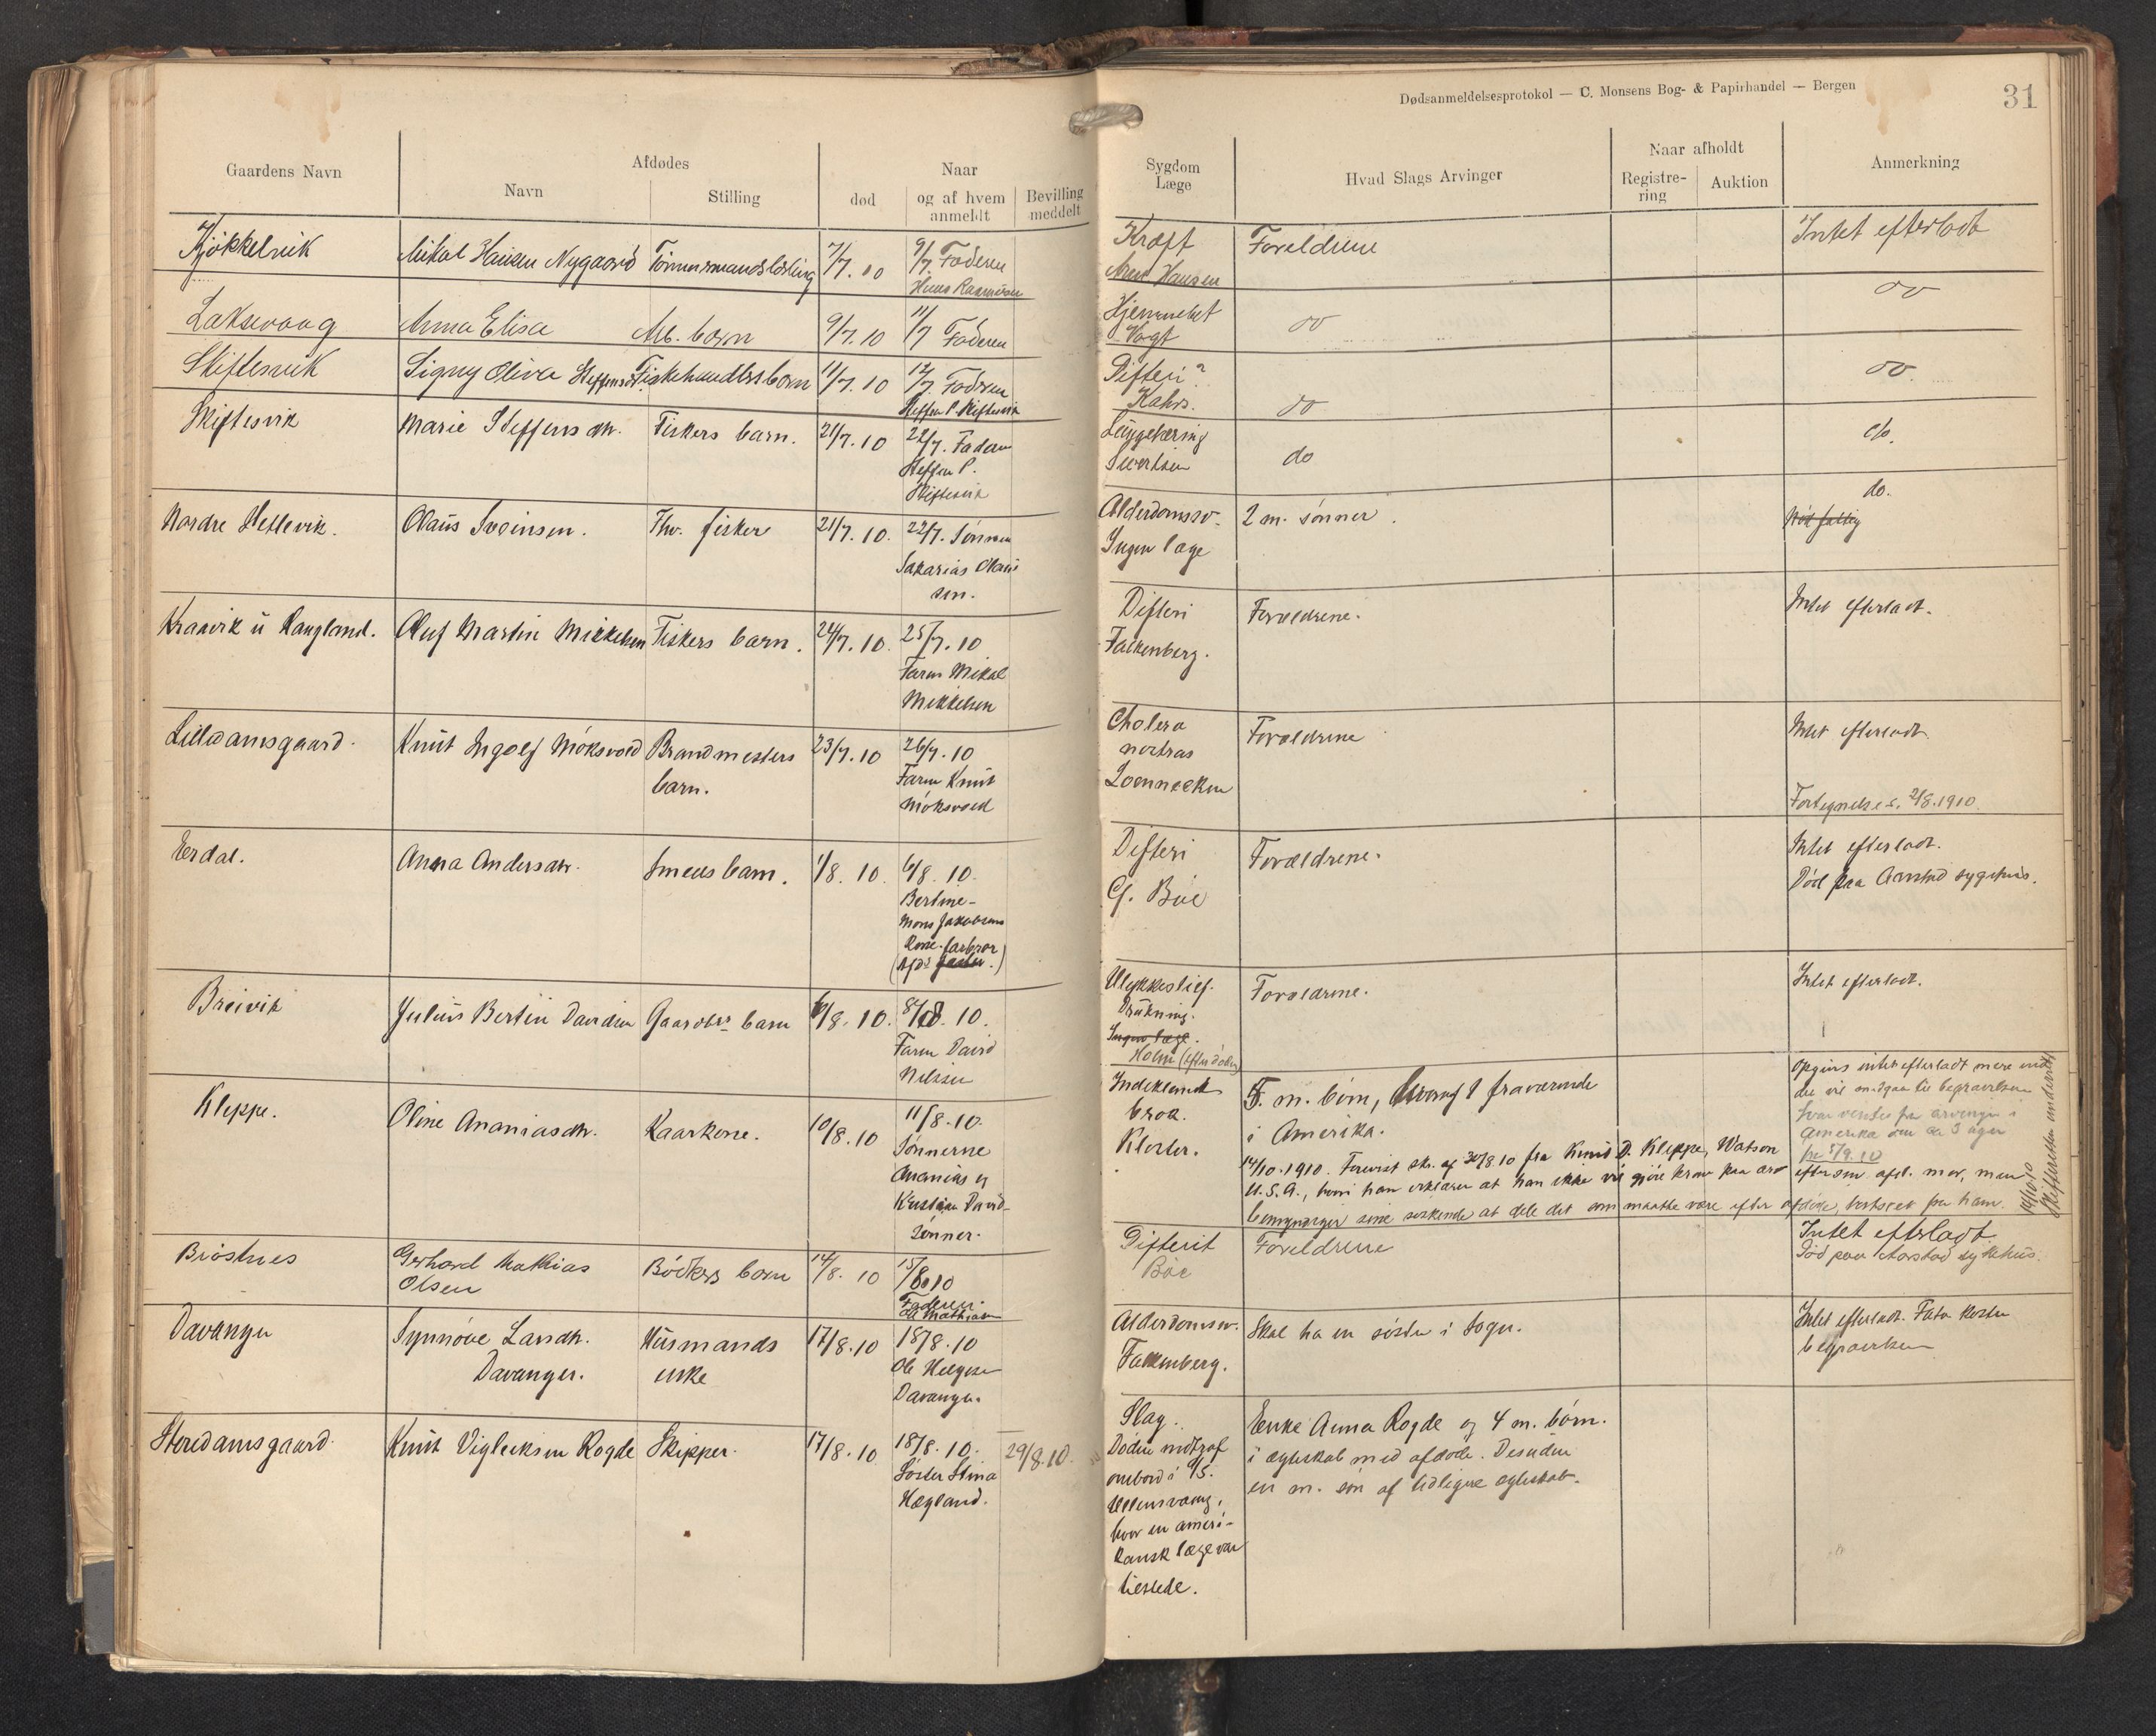 Dødsanmeldelsesprotokol — C. Monsens Bog- & Papirhandel — Bergen
31
Gaardens Navn
Afdødes
Navn
Stilling
Naar
død
og af hvem anmeldt
Bevilling meddelt
Sygdom
Læge
Hvad Slags Arvinger
Naar afholdt
Registrering
Auktion
Anmerkning
Kjøkkelvik
Mikal Hansen Nygaard
7/7. 10
9/7. Faderen
Hans Rasmussen
Kræft
Hansen
Forældrene
Intet efterladt
Laksevaag
Anna Elise
Arb. barn
9/7. 10
11/7 Faderen
Hjernebet
Vogt
do
do
Skiftesvik
Signy Oliva Steffensd.
Fiskehandlers barn
11/7. 10
12/7. Faderen
Steffen P. Skiftesvik
Difteri?
Kahrs.
do
do.
Skiftesvik
Marie Steffensdtr.
Fiskers barn.
21/7. 10
22/7. Faderen
Steffen P.
Skiftesvik
Lungetæring
Sivertsen
do
do.
Nordre Hetlevik.
Olaus Sveinsen.
Fhv. fisker
21/7. 10.
22/7. Sønnen
Sakarias Olaus
sen.
Alderdomssv.
Ingen læge
2 m. sønner.
do.
Kraavik u Haugland.
Oluf Martin Mikkelsen
Fiskers barn.
24/7. 10.
25/7. 10
Faren Mikal
Mikkelsen
Difteri
Falkenberg.
Forældrene.
Intet efterladt.
Lilledamsgaard.
Knut Ingolf Møksvold
Brandmesters
barn.
23/7. 10
26/7. 10
Faren Knut
Møksvold
Cholera
nostras
Loennecken
Forældrene
Intet efterladt.
Fortegnelse s. 2/8. 1910.
Erdal.
Anna Andersdtr.
Smeds barn.
1/8. 10.
6/8. 10.
Bertine
Mons Jakobsens
Kone. farbror
Difteri
G. Bøe
Forældrene.
Intet efterladt.
Død paa Aarstad sygehus.
Breivik
Julius Bertin Davidsen
Gaardbr. barn
6/8. 10.
8/8. 10.
Faren David
Nilssen
Ulykkestilf.
Drukning.
Ingen læge.
Holm (efter døden)
Forældrene.
Intet efterladt.
Kleppe.
Oline Ananiasdtr.
Kaarkone.
10/8. 10
11/8. 10.
Sønnerne
Ananias og
Kristian David-
sønner.
Indeklemt
brok.
Kloster.
5. m. børn, hvoraf 1 fraværende
i Amerika.
14/10. 1910. Forevist skr. af 30/8 10 fra Knut D. Kleppe, Watson
U. S. A., hvori han erklærer at han ikke vil gjøre krav paa arv
efter sin afd. mor, men
bemyndiger sine søskende at dele det som maatte være efter afdøde, bortseet fra ham.
Opgives intet efterladt mere end
det vil medgaa til begravelsen
Svar ventes fra arvingen i
Amerika om ca 3 uger
fra 5/9. 10
14/10 10
Skifteretten underrettet
Brøstnes
Gerhard Mathias
Olsen
Bødkers barn
14/8. 10
15/8 10
Faderen
Ole Mathiasen
Difterit
Bøe
Forældrene
Intet efterladt
Død paa Aarstad sykehus.
Davanger
Synnøve Larsdtr.
Davanger.
Husmands
enke
17/8. 10
18/8. 10
Ole Helgesen
Davanger.
Alderdomssv.
Falkenberg.
Skal ha en søster i Sogn.
Intet efterladt. Fatv. koster
begravelsen
Storedamsgaard.
Knut Vigleiksen Rogde
Skipper.
17/8. 10
18/8. 10.
Søster Stina
Hægland.
29/8. 10.
Slag.
Døden indtraf
ombord i S/S.
Ullensvang,
hvor en ameri-
kansk læge var
tilstede.
Enke Anna Rogde og 4 m. børn.
i ægteskab med afdøde. Desuden
en m. søn af tidligere ægteskab.